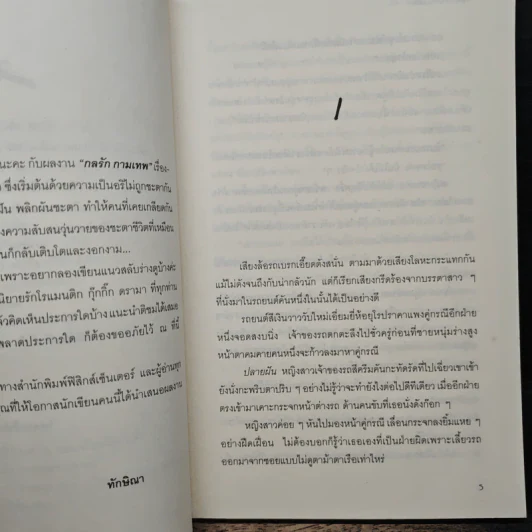 นะคะ กับผลงาน "กลรัก กามเทพ" เรื่อง-
ซึ่งเริ่มต้นด้วยความเป็นอริไม่ถูกชะตากัน
พลิกผันชะตา ทำให้คนที่เคยเกลียดกัน
งความลับสนวุ่นวายของชะตาชีวิตที่เหมือน
นก็กลับเติบโตและงอกงาม...
เพราะอยากลองเขียนแนวสลับร่างดูบ้างค่ะ
นิยายรักโรแมนติก กุ๊กกิ๊ก ดรามา ที่ทุกท่าน
ล้วคิดเห็นประการใดบ้าง แนะนำติชมได้เสมอ
พลาดประการใด ก็ต้องขออภัยไว้ ณ ที่นี้
ทางสำนักพิมพ์ฟิสิกส์เซ็นเตอร์ และผู้อ่านทุก
ณที่ให้โอกาสนักเขียนคนนี้ได้นำเสนอผลงาน
ทักษิณา
1
เสียงล้อรถเบรกเอี๊ยดดังสนั่น ตามมาด้วยเสียงโลหะกระแทกกัน
แม้ไม่ดังจนถึงกับน่ากลัวนัก แต่ก็เรียกเสียงกรีดร้องจากบรรดาสาว ๆ
ที่นั่งมาในรถยนต์คันหนึ่งในนั้นได้เป็นอย่างดี
รถยนต์สีเงินวาววับใหม่เอี่ยมยี่ห้อยุโรปราคาแพงคู่กรณีอีกฝ่าย
หนึ่งจอดสงบนิ่ง เจ้าของรถตกตะลึงไปชั่วครู่ก่อนที่ชายหนุ่มร่างสูง
หน้าตาคมคายคนหนึ่งจะก้าวลงมาหาคู่กรณี
ปลายฝัน หญิงสาวเจ้าของรถสีครีมคันกะทัดรัดที่ไปเฉี่ยวชาเขาเข้า
ยังนั่งกะพริบตาปริบ ๆ อย่างไม่รู้ว่าจะทำยังไงต่อไปดีทีเดียว เมื่ออีกฝ่าย
ตรงเข้ามาเคาะกระจกหน้าต่างรถ ด้านคนขับที่เธอนั่งดังก๊อก ๆ
หญิงสาวค่อย ๆ หันไปมองหน้าคู่กรณี เลื่อนกระจกลงยิ้มแหย ๆ
อย่างฝืดเฝื่อน ไม่ต้องบอกก็รู้ว่าเธอเองที่เป็นฝ่ายผิดเพราะเลี้ยวรถ
ออกมาจากซอยแบบไม่ดูตาม้าตาเรือเท่าไหร่
5